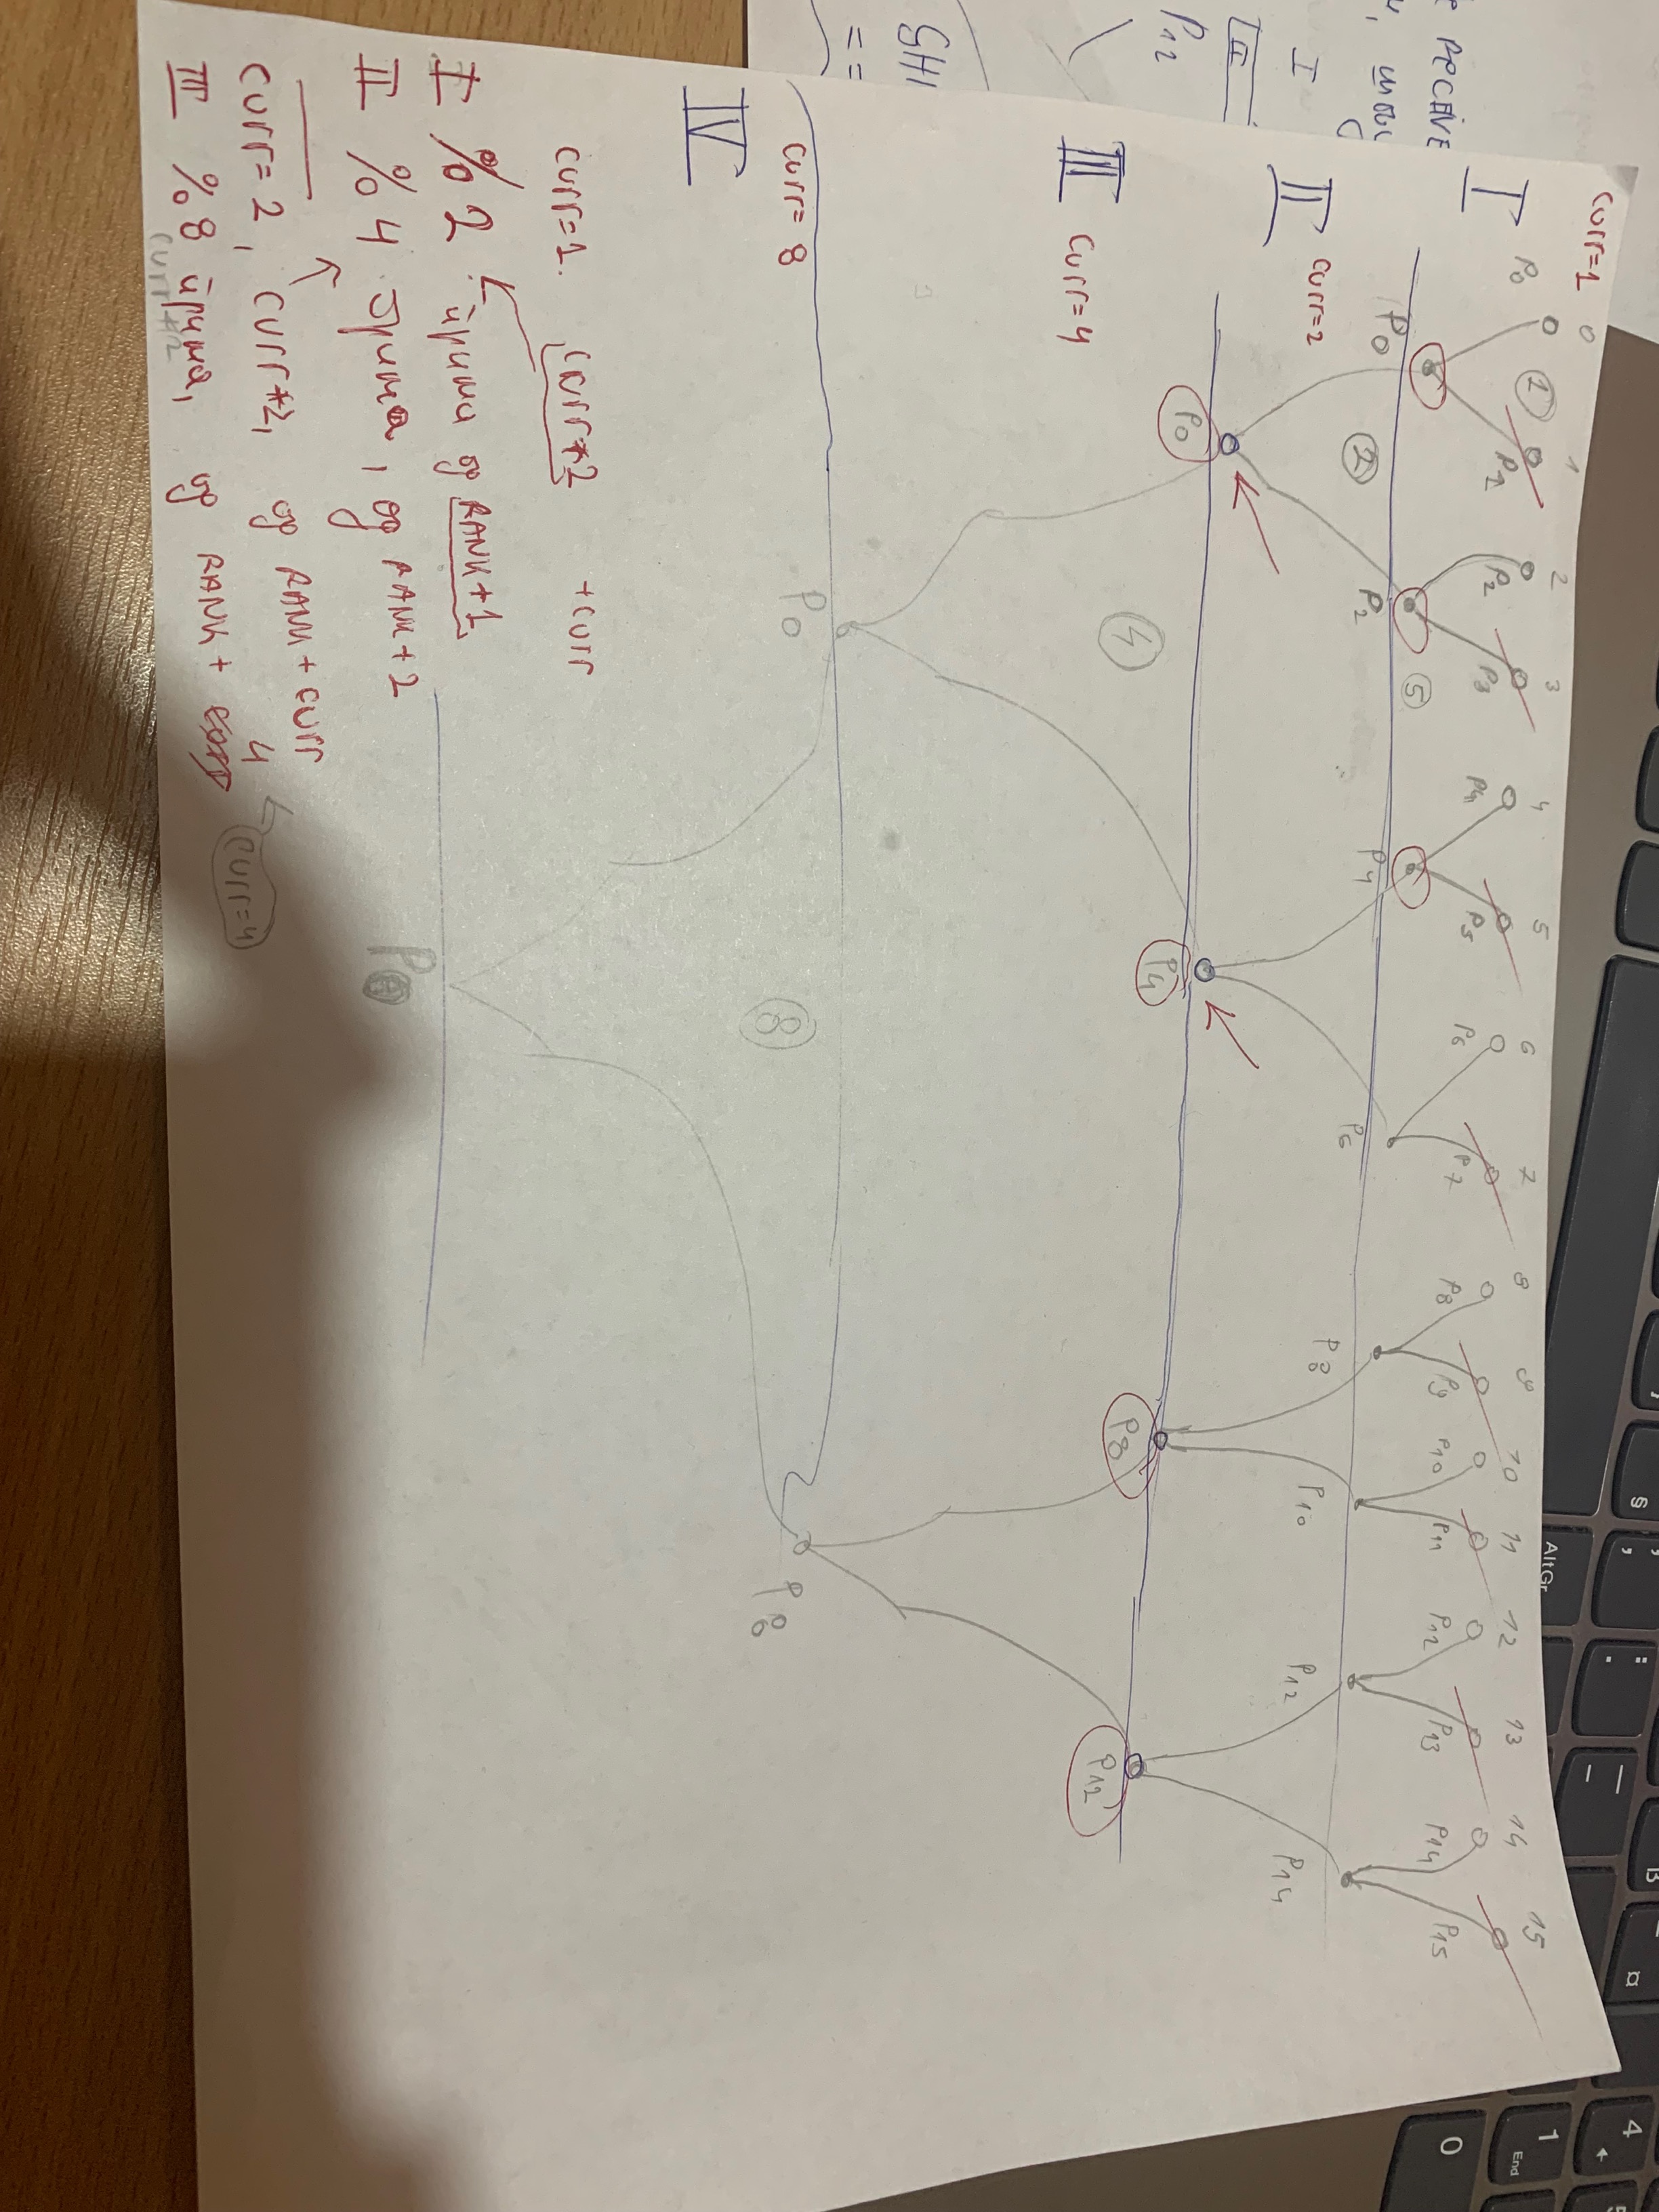 §
AltGr
4
1
End
0
curr=1
0 1 2 3 4 5 6 7 8 9 10 11 12 13 14 15
I
P0 1 P1 P2 P3 P4 P5 P6 P7 P8 P9 P10 P11 P12 P13 P14 P15
P0 P2 5 P4 P6 P8 P10 P12 P14
2
II curr=2
P0 P4 P8 P12
4
III curr=4
P0 P8
8
curr= 8
IV
P0
curr=1. curr*2 +curr
I %2 прима од RANK+1
II %4 прима, од RANK+2
curr=2, curr*2, од RANK+curr
4 curr=4
III %8 прима, од RANK+
curr*2
I
II
P12